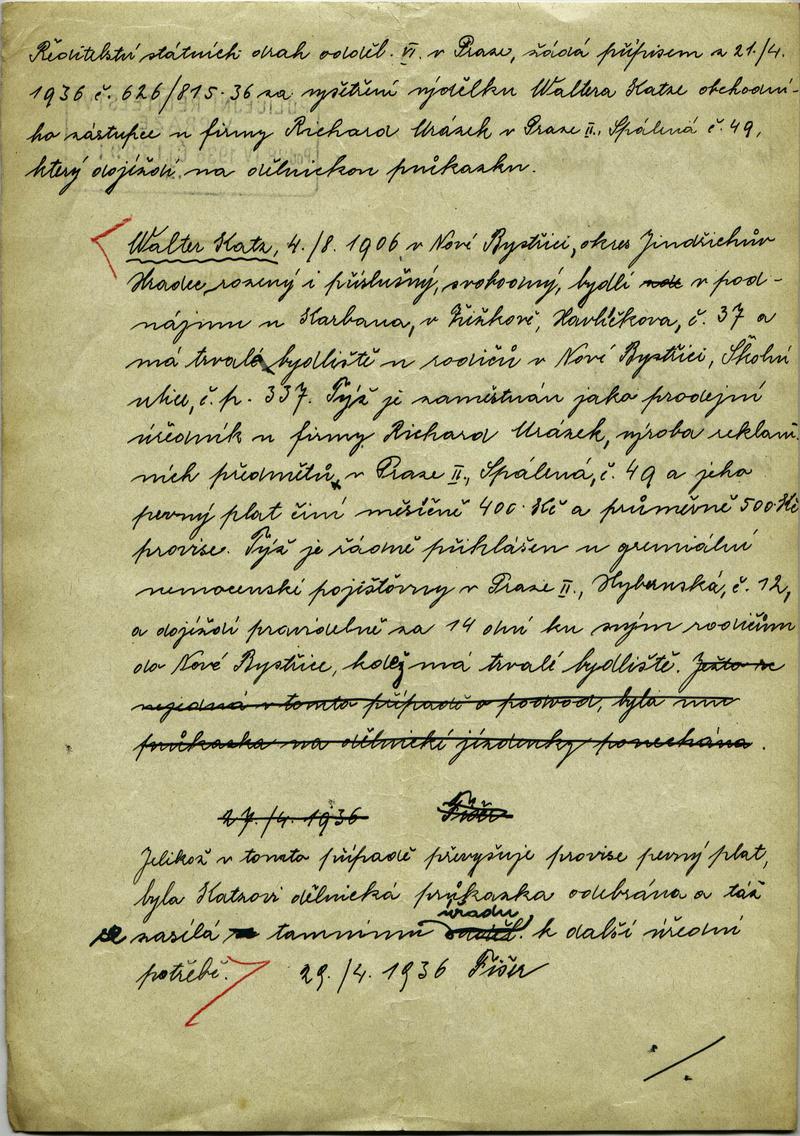 Ředitelství státních drah odděl. VI. v Praze, žádá přípisem z 21./4.
1936 č. 626/815-36 za vyšetření výdělku Waltera Katze obchodní-
ho zástupce u firmy Richard Urázek v Praze II., Spálená č. 49,
který dojíždí na dělnickou průkazku.
Walter Katz, 4./8. 1906 v Nové Bystřici, okres Jindřichův
Hradec, rozený i příslušný, svobodný, bydlí zde v pod-
nájmu u Karbana, v Žižkově, Havlíčkova, č. 37 a
má trvalé bydliště u rodičů v Nové Bystřici, Školní
ulice, č. p. 337. Týž je zaměstnán jako prodejní
úředník u firmy Richard Urázek, výroba reklam-
ních předmětů, v Praze II., Spálená, č. 49 a jeho
pevný plat činí měsíčně 400 Kč a průměrně 500 Kč
provise. Týž je řádně přihlášen u gremiální
nemocenské pojišťovny v Praze II., Hybernská, č. 12,
a dojíždí pravidelně za 14 dní ku svým rodičům
do Nové Bystřice, kdež má trvalé bydliště. Ježto se
nejedná v tomto případě o podvod, byla mu
průkazka na dělnické jízdenky ponechána.
27./4. 1936 Fišer
Jelikož v tomto případě převyšuje provise pevný plat,
byla Katzovi dělnická průkazka odebrána a táž
úřadu
se zasílá tamnímu odděl. k další úřední
potřebě. 29./4. 1936 Fišer